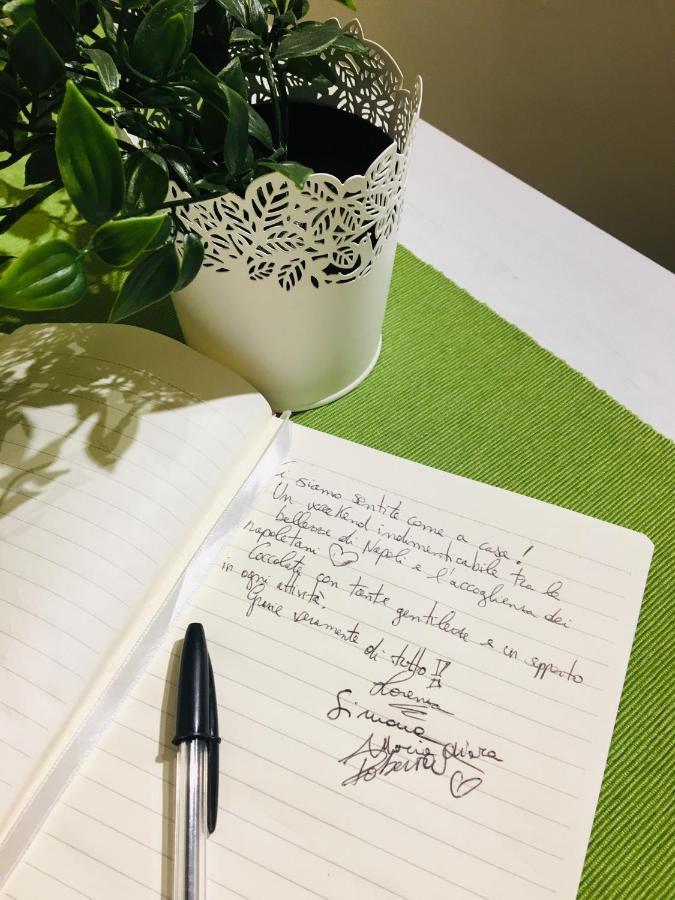 i siamo sentite come a casa!
Un weekend indimenticabile tra le
bellezze di Napoli e l'accoglienza dei
napoletani ♡
Coccolate con tanta gentilezza e un supporto
in ogni attività.
Grazie veramente di tutto !!
Lorenza
Simona
Maria Chiara
Roberta ♡